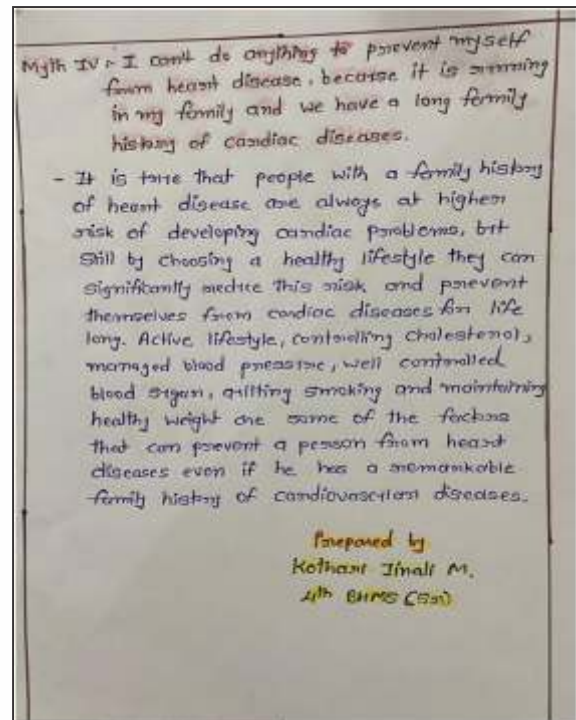 Myth IV :- I can't do anything to prevent myself
from heart disease, because it is running
in my family and we have a long family
history of cardiac diseases.
- It is true that people with a family history
of heart disease are always at higher
risk of developing cardiac problems, but
still by choosing a healthy lifestyle they can
significantly reduce this risk and prevent
themselves from cardiac diseases for life
long. Active lifestyle, controlling cholesterol,
managed blood pressure, well controlled
blood sugar, quitting smoking and maintaining
healthy weight are some of the factors
that can prevent a person from heart
diseases even if he has a remarkable
family history of cardiovascular diseases.
Prepared by
Kothari Jinali M.
4th BHMS